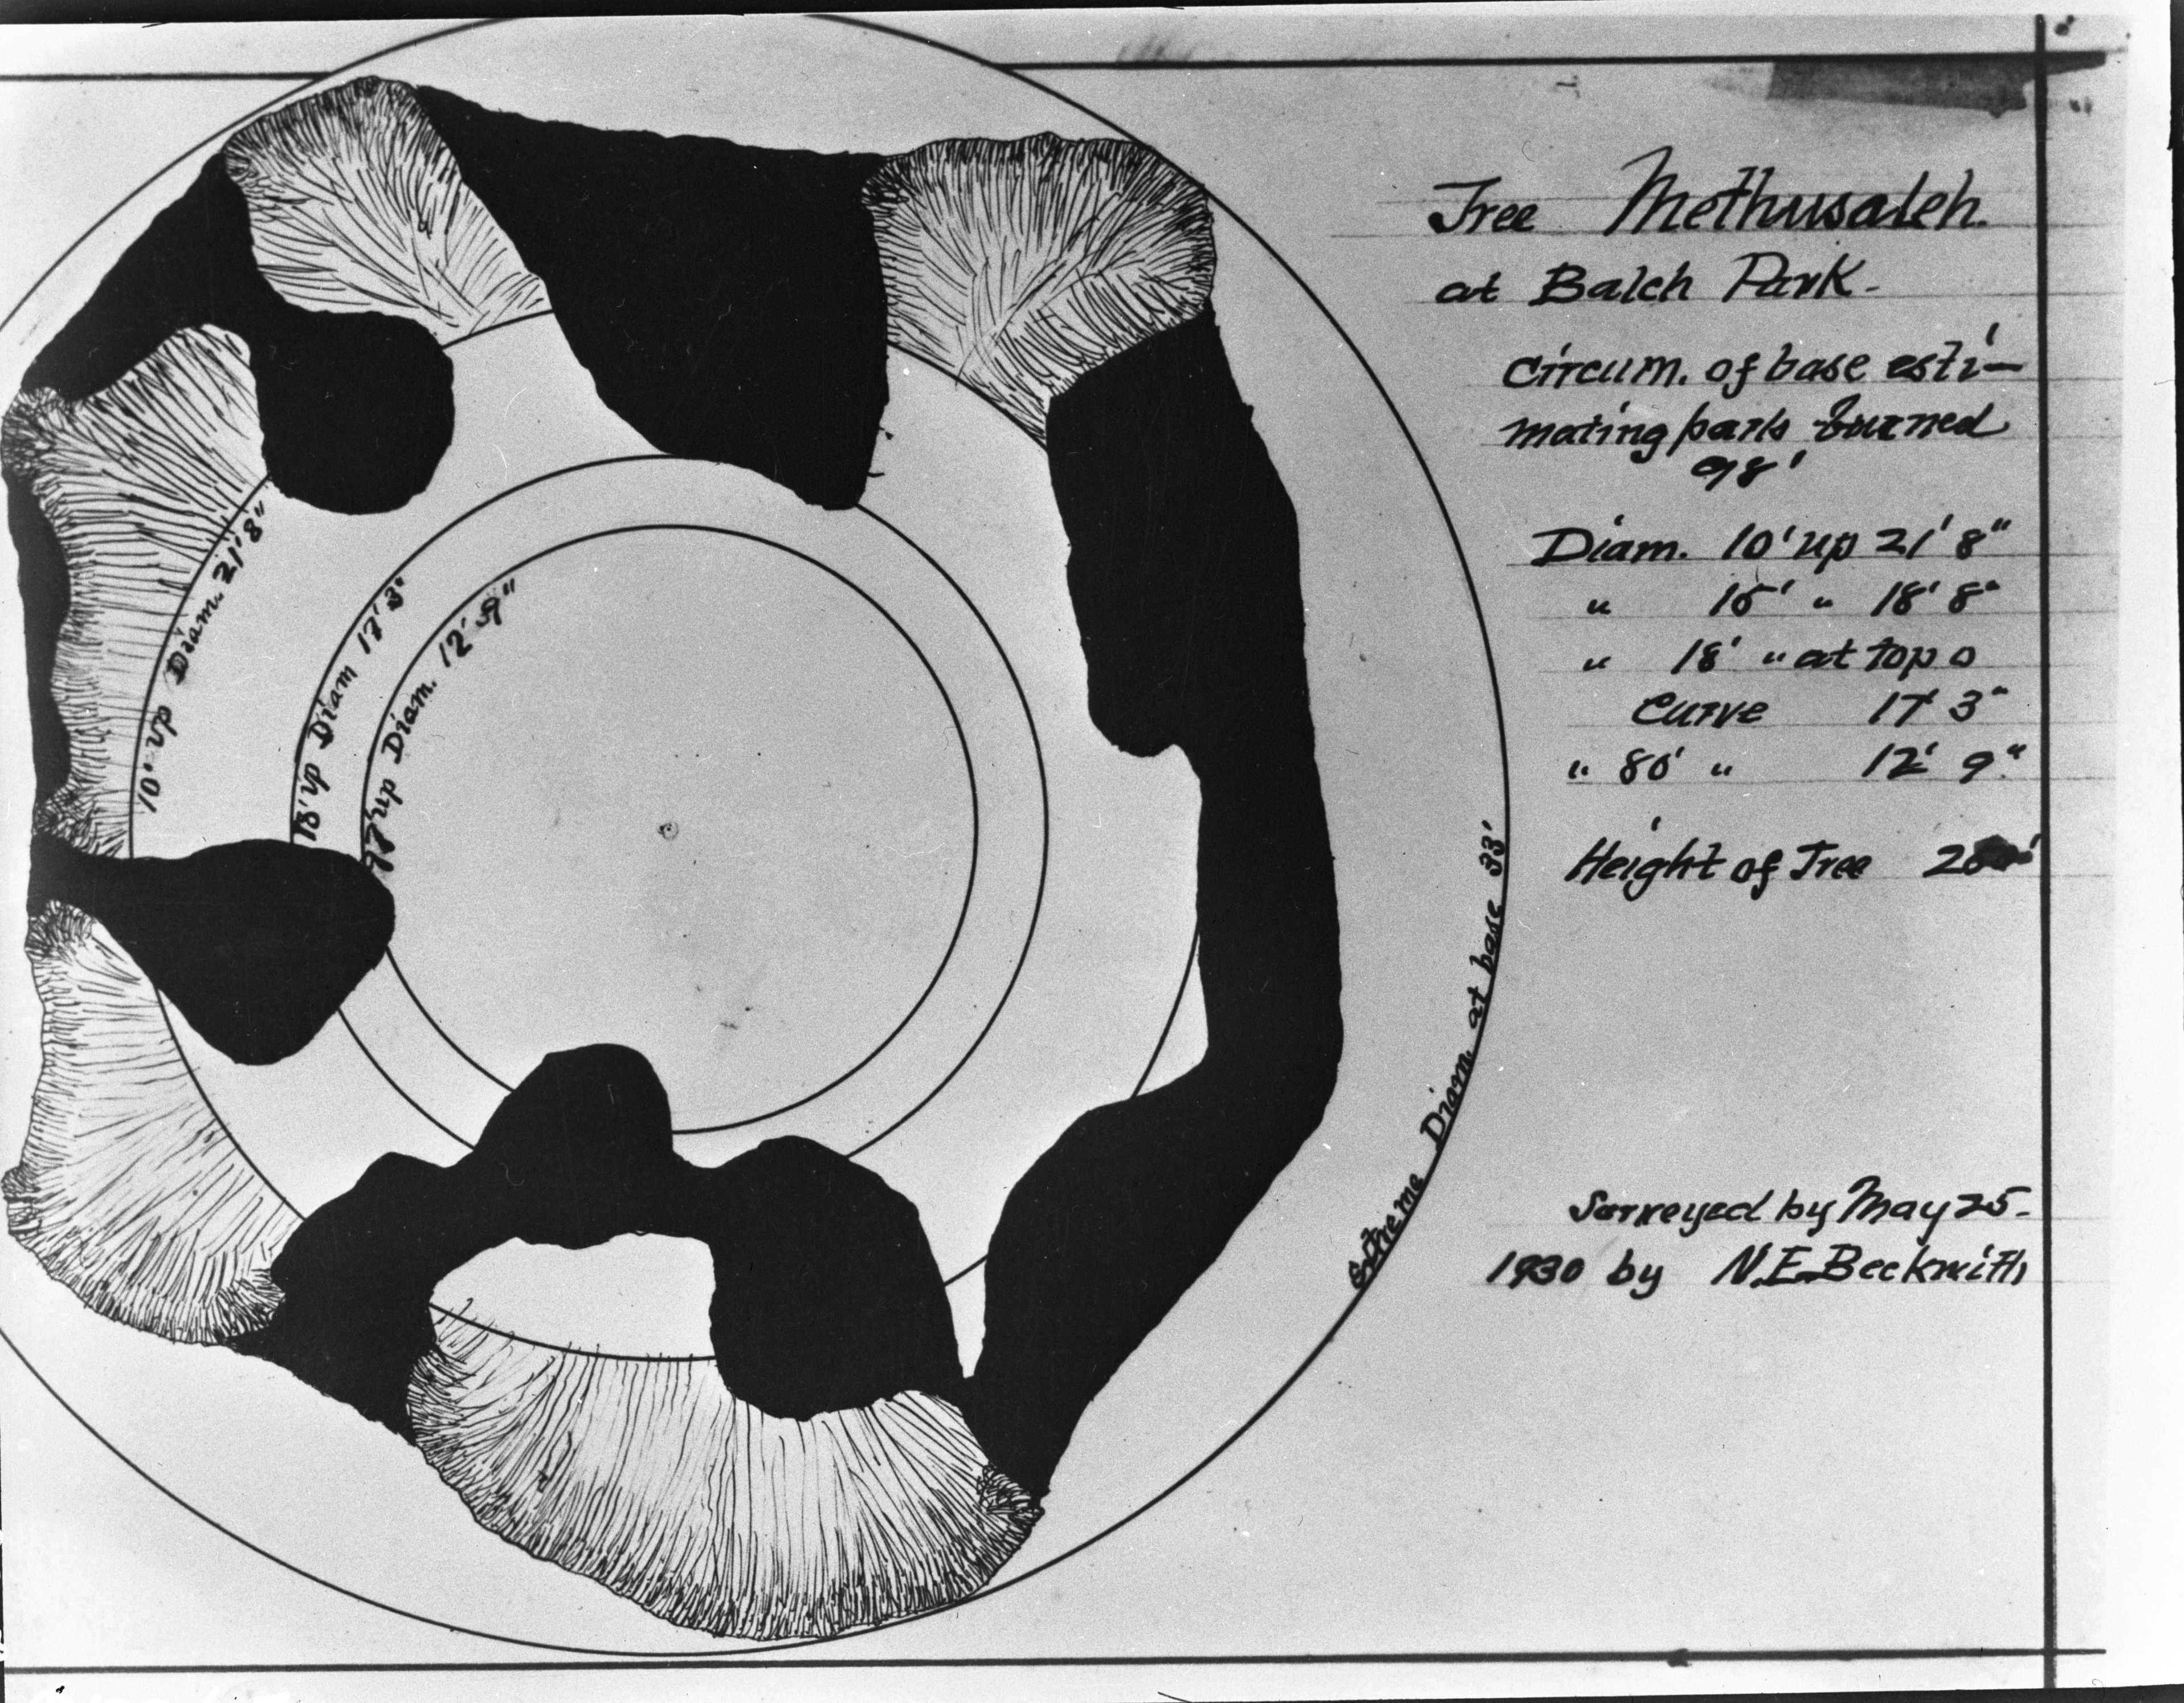 Tree Methusaleh.
at Balch Park.
Circum. of base esti-
mating parts burned
98'
Diam. 10' up 21' 8"
" 15' " 18' 8"
" 18' " at top o
Curve 17' 3"
" 80' " 12' 9"
Height of Tree
Surveyed by May 25.
1930 by N.E. Beckwith
10' up Diam. 21' 8"
18' up Diam 17' 3"
up Diam. 12' 9"
Extreme Diam. at base 33'